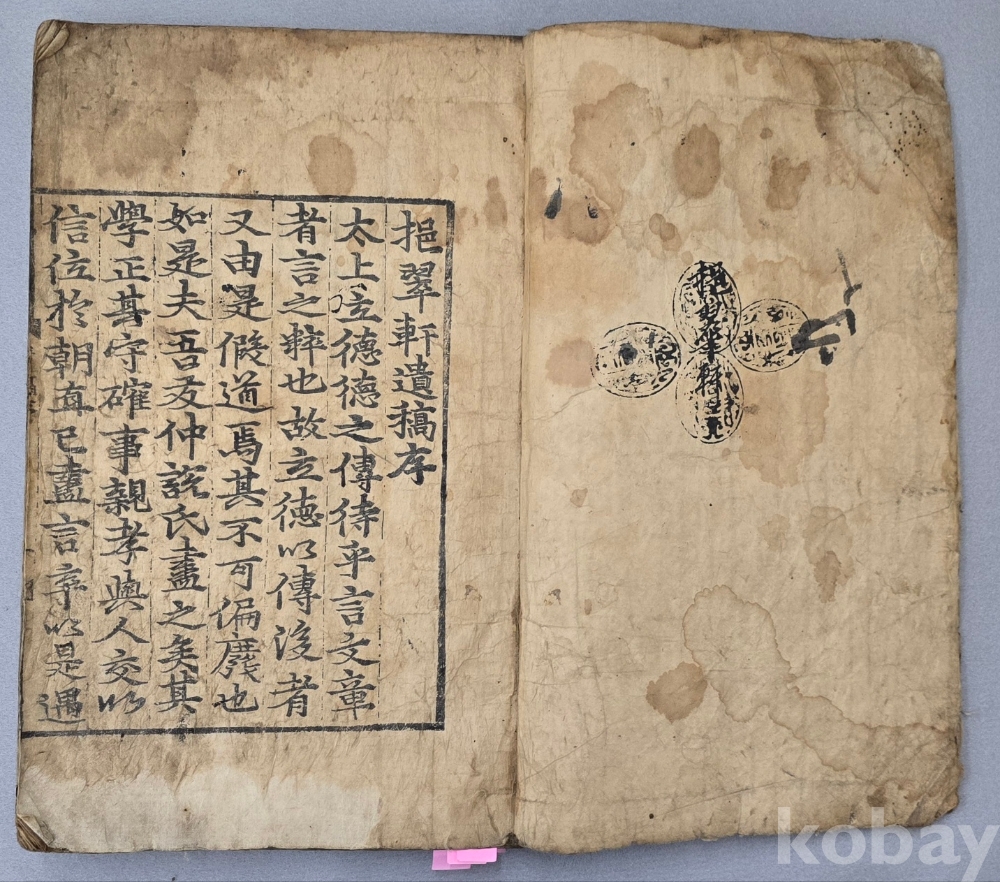 挹翠軒遺稿序
太上立德德之傳待乎言文章
者言之粹也故立德以傳後者
又由是假道焉其不可偏廢也
如是夫吾友仲說氏盡之矣其
學正其守確事親孝與人交以
信位於朝直己盡言卒以是遇
kobay